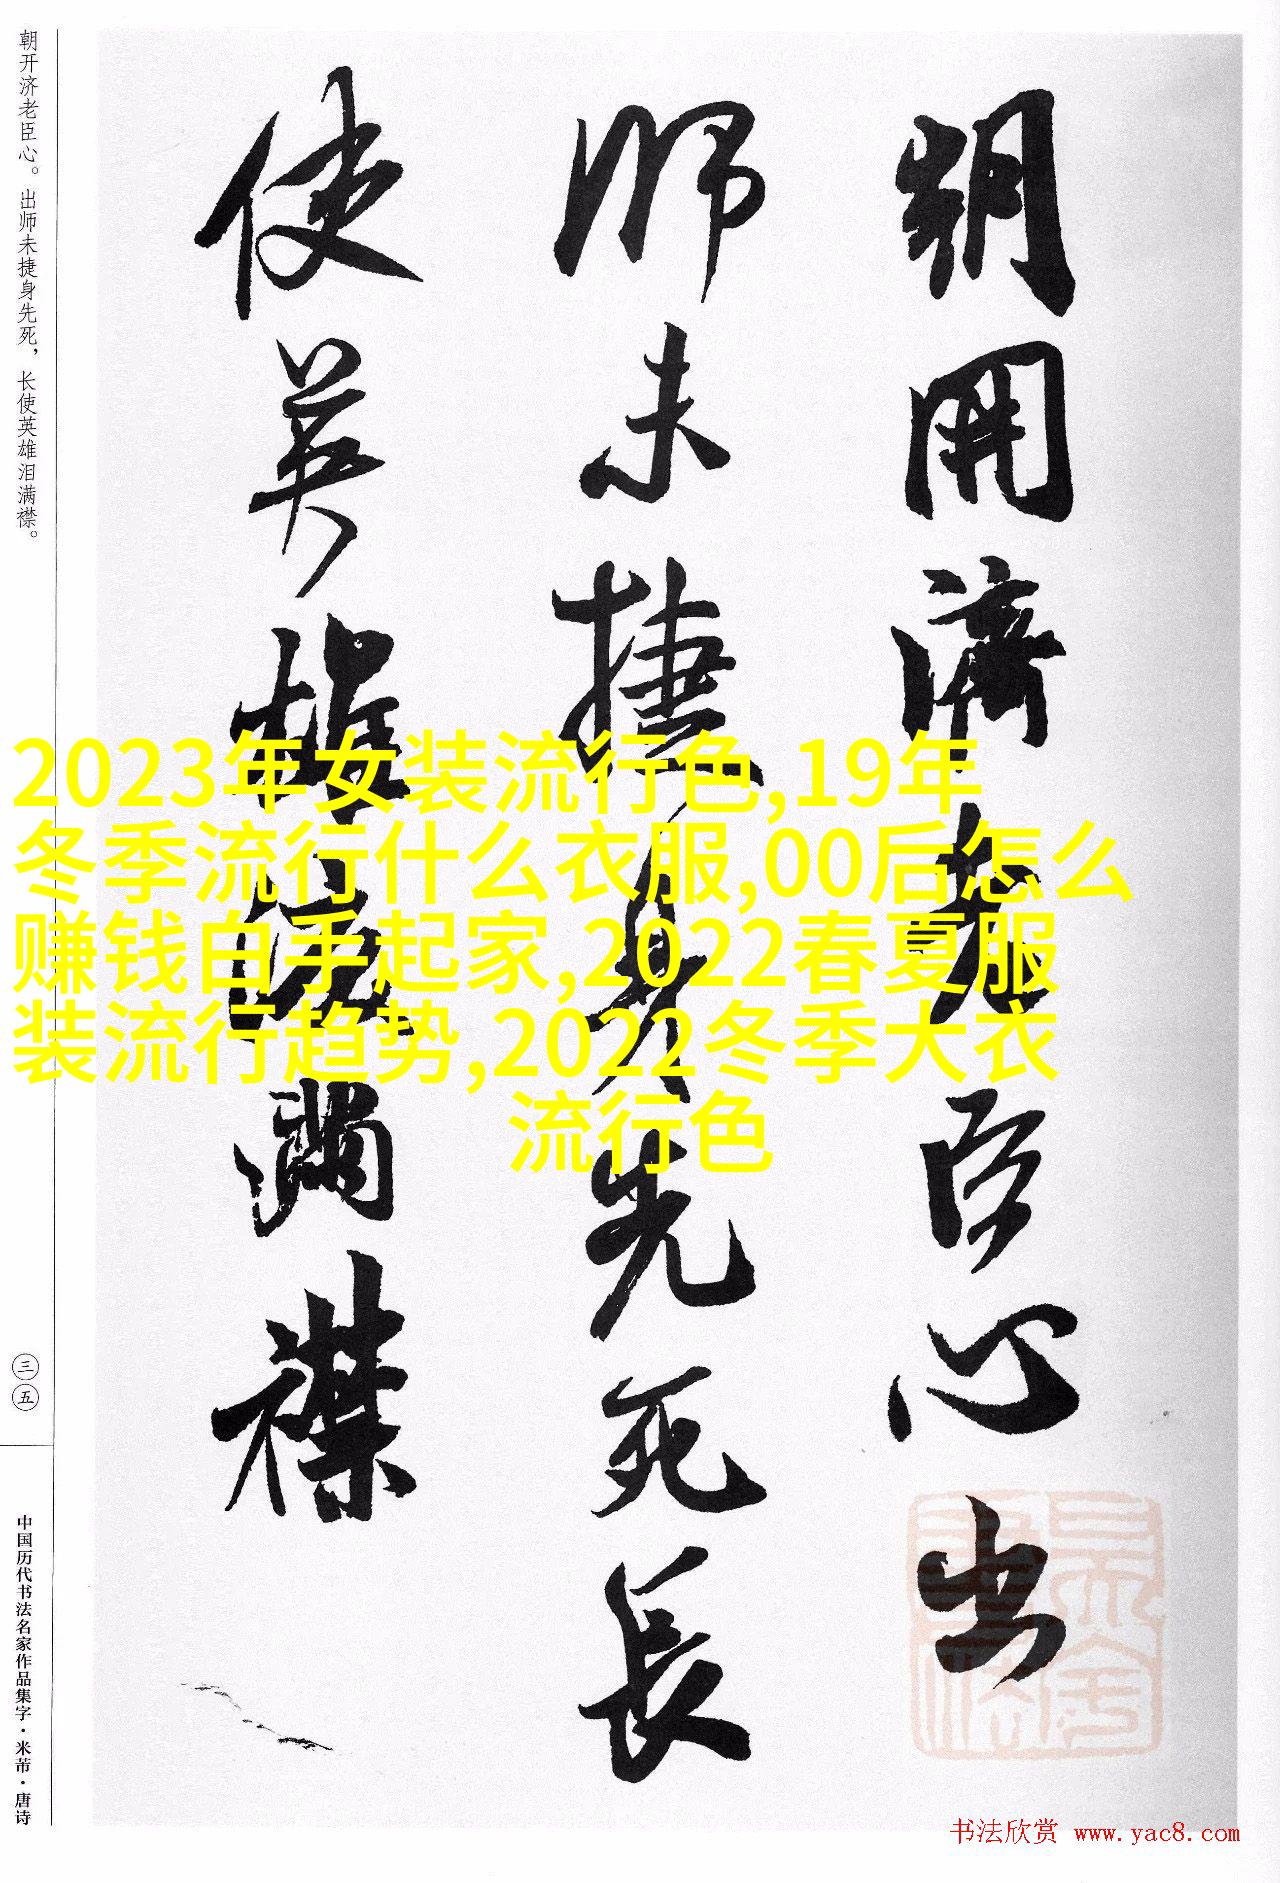 朝开济老臣心。出师未捷身先死，长使英雄泪满襟。
三五
中国历代书法名家作品集字·米芾·唐诗
朝開濟老臣心出
師未捷身先死長
使英雄淚滿襟
2023年女装流行色,19年
冬季流行什么衣服,00后怎么
赚钱白手起家,2022春夏服
装流行趋势,2022冬季大衣
流行色
书法欣赏 www.yac8.com